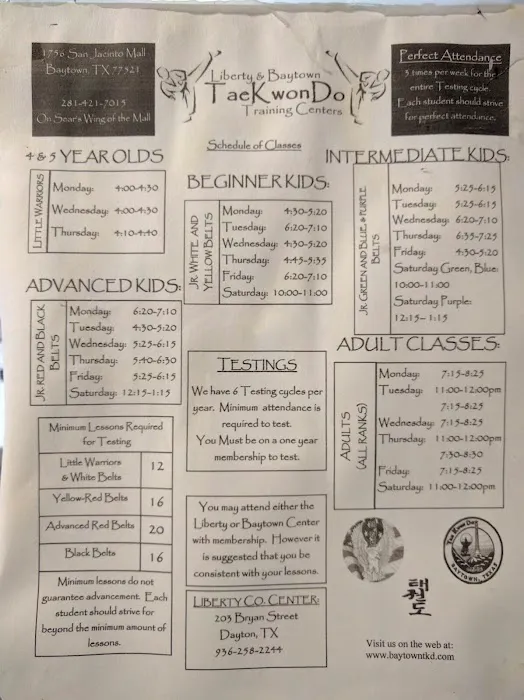 1756 San Jacinto Mall
Baytown, TX 77521
281-421-7015
On Sear's Wing of the Mall
Liberty & Baytown
TaeKwonDo
Training Centers
Perfect Attendance
3 times per week for the
entire Testing cycle.
Each student should strive
for perfect attendance.
Schedule of Classes
4 & 5 YEAR OLDS
LITTLE WARRIORS
Monday: 4:00-4:30
Wednesday: 4:00-4:30
Thursday: 4:10-4:40
BEGINNER KIDS:
JR. WHITE AND
YELLOW BELTS
Monday: 4:30-5:20
Tuesday: 6:20-7:10
Wednesday: 4:30-5:20
Thursday: 4:45-5:35
Friday: 6:20-7:10
Saturday: 10:00-11:00
INTERMEDIATE KIDS:
JR. GREEN AND BLUE & PURPLE
BELTS
Monday: 5:25-6:15
Tuesday: 5:25-6:15
Wednesday: 6:20-7:10
Thursday: 6:35-7:25
Friday: 4:30-5:20
Saturday Green, Blue:
10:00-11:00
Saturday Purple:
12:15-1:15
ADVANCED KIDS:
JR. RED AND BLACK
BELTS
Monday: 6:20-7:10
Tuesday: 4:30-5:20
Wednesday: 5:25-6:15
Thursday: 5:40-6:30
Friday: 5:25-6:15
Saturday: 12:15-1:15
TESTINGS
We have 6 Testing cycles per
year. Minimum attendance is
required to test.
You Must be on a one year
membership to test.
ADULT CLASSES:
ADULTS
(ALL RANKS)
Monday: 7:15-8:25
Tuesday: 11:00-12:00pm
7:15-8:25
Wednesday: 7:15-8:25
Thursday: 11:00-12:00pm
7:30-8:30
Friday: 7:15-8:25
Saturday: 11:00-12:00pm
Minimum Lessons Required
for Testing
Little Warriors
& White Belts 12
Yellow-Red Belts 16
Advanced Red Belts 20
Black Belts 16
Minimum lessons do not
guarantee advancement. Each
student should strive for
beyond the minimum amount of
lessons.
You may attend either the
Liberty or Baytown Center
with membership. However it
is suggested that you be
consistent with your lessons.
LIBERTY CO. CENTER:
203 Bryan Street
Dayton, TX
936-258-2244
TAE KWON DO
BAYTOWN, TEXAS
태권도
Visit us on the web at:
www.baytowntkd.com